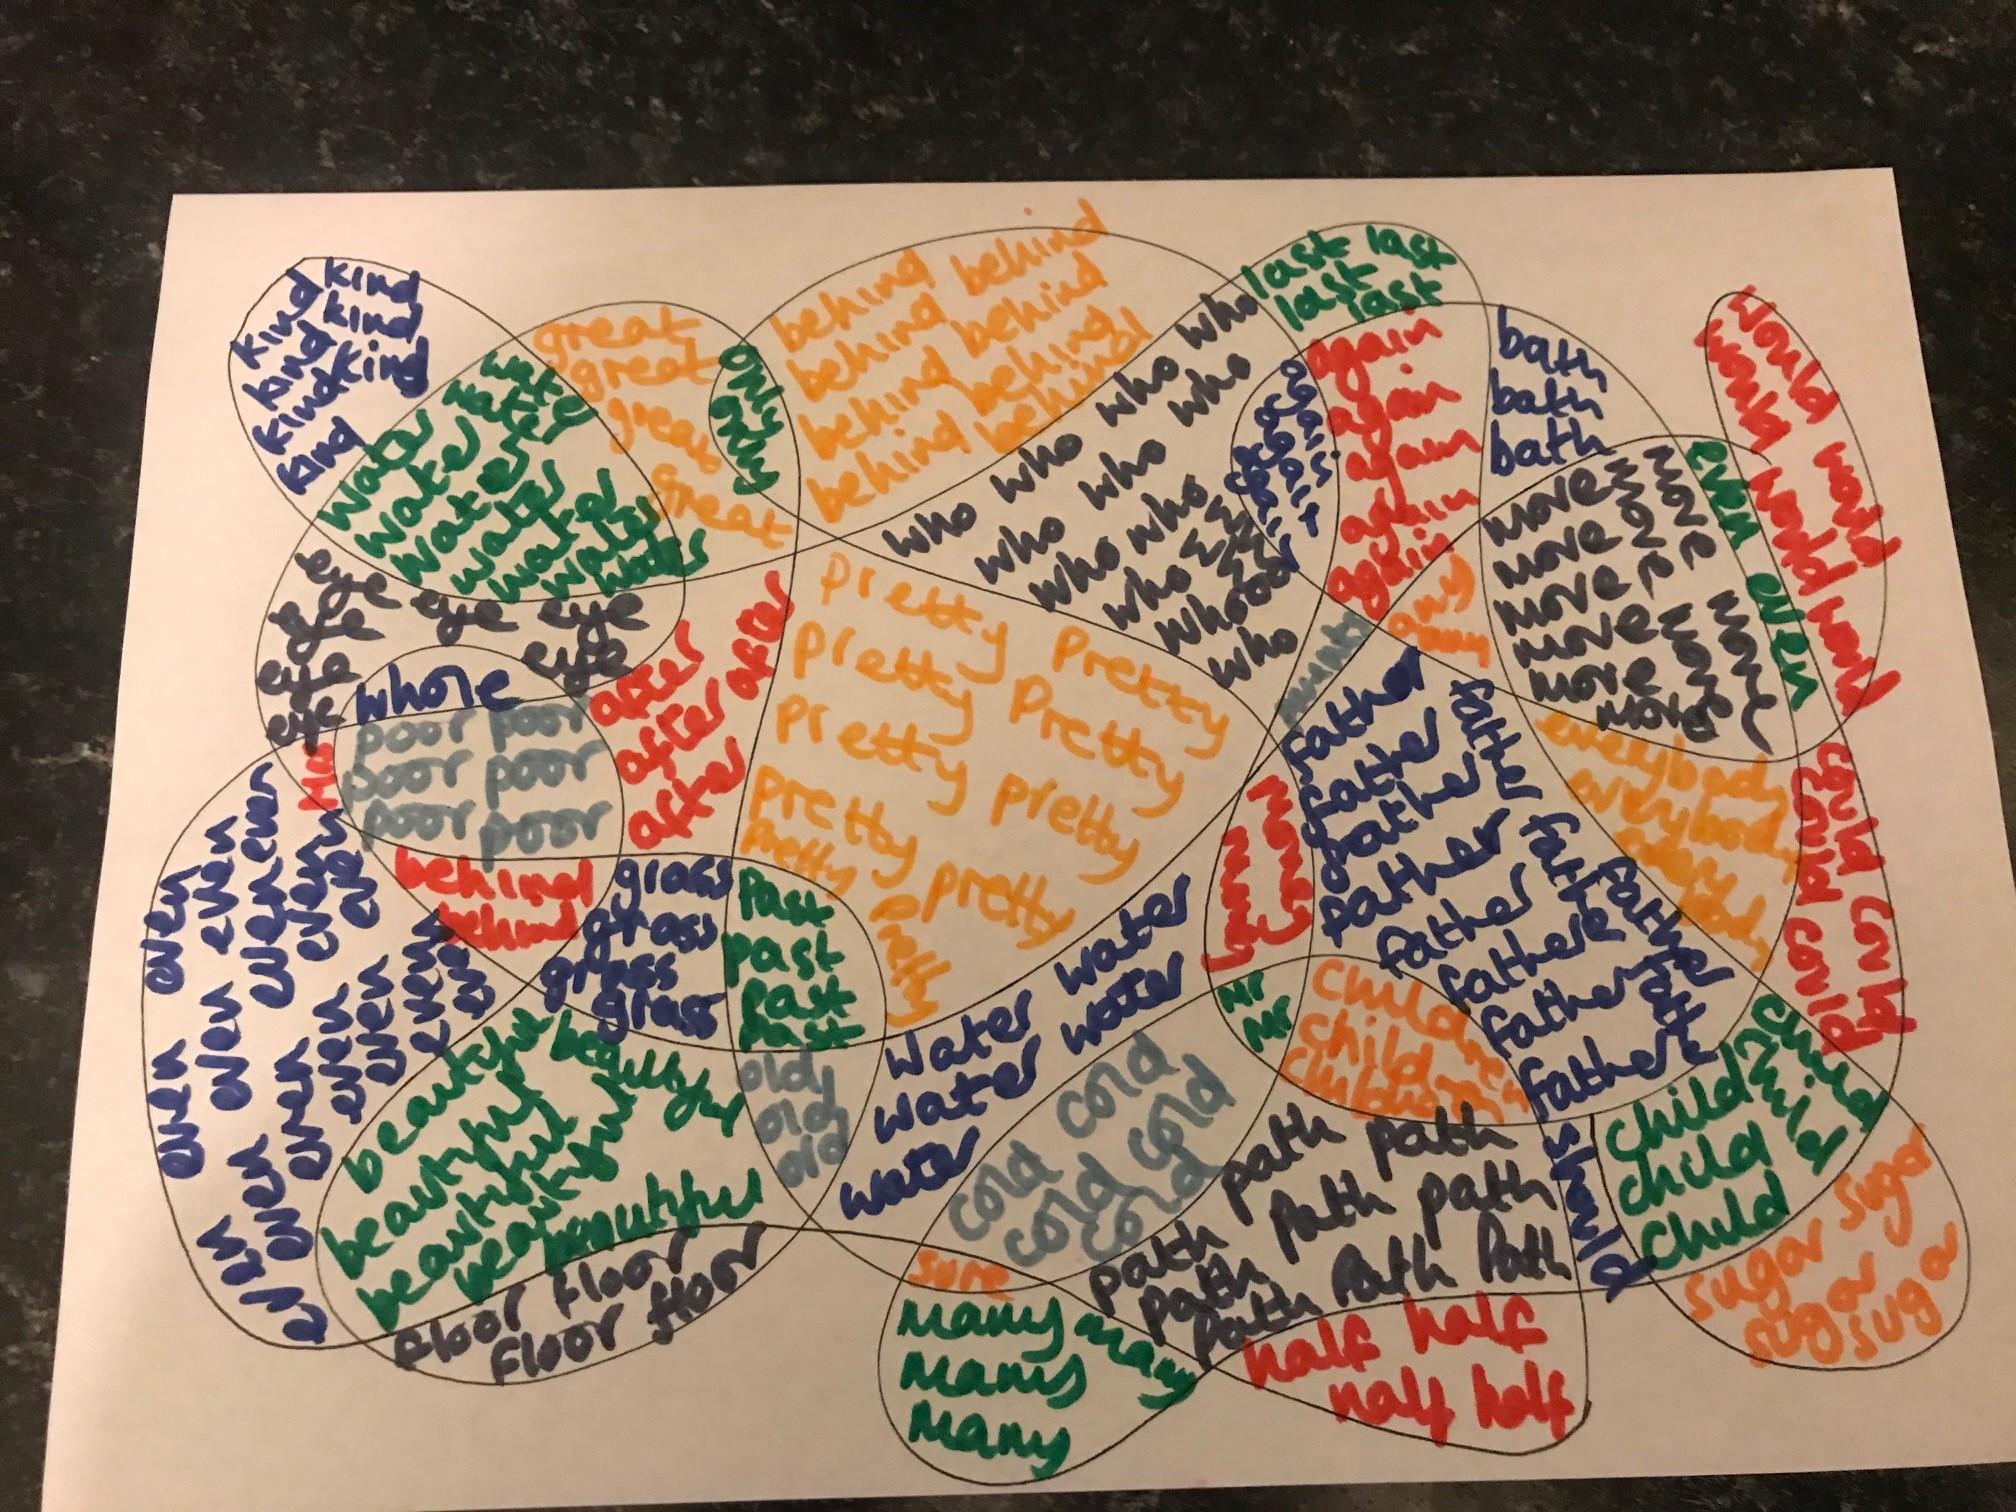 kind kind
kind kind
kind kind
kind
kind
water
water
water
water
water
water
water
great
great
great
great
only
only
behind behind
behind behind
behind behind
behind behind
who who
who who who
who who
who who
who
who
last last
last last
again
again
again
again
again
bath
bath
bath
any
any
move
move
move
move
move
move
move
move
even
even
would would
would would
would would
eye
eye eye eye
eye eye
eye
whole
poor poor
poor poor
poor poor
after
after after
after
after
pretty pretty
pretty pretty
pretty pretty
pretty pretty
pretty
father
father father
father
father father
father father
father
father
father
everybody
could could
could could
many
many
behind
behind
grass
grass
grass
grass
past
past
past
past
even even even
even even
even even
even even
even
beautiful
beautiful beautiful
beautiful
beautiful
beautiful
old
old
old
water water
water water
water
Mr
Mr
child
child
cold cold
cold cold
cold
path path
path path path
path path path
path
should
child child
child child
child
sugar sugar
sugar
sug
floor floor
floor floor
sure
many many
many
many
half half
half half